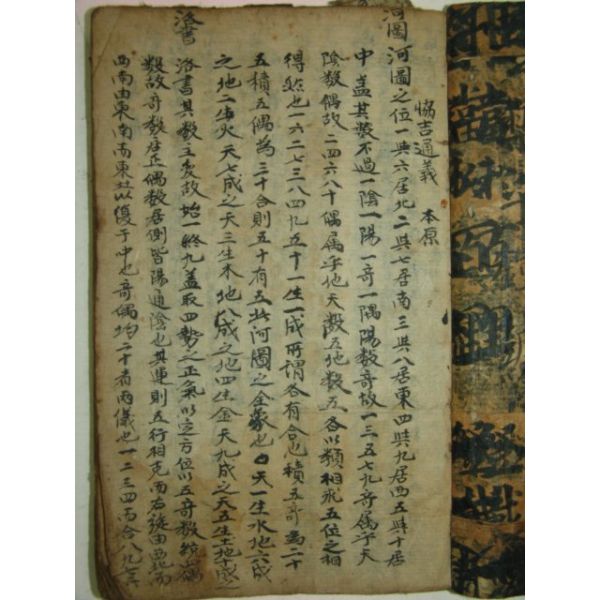 協吉通義 本原
河圖 河圖之位一與六居北二與七居南三與八居東四與九居西五與十居
中盖其数不過一陰一陽一奇一隅陽数奇故一三五七九奇属乎天
陰数偶故二四六八十偶属乎地天数五地数五各以類相求五位之相
得然也一六二七三八四九五十一生一成所謂各有合也積五奇為二十
五積五偶為三十合則五十有五此河圖之全象也天一生水地六成
之地二生火天七成之天三生木地八成之地四生金天九成之天五生土地十成之
洛書 洛書其数主変故始一終九盖取四勢之正氣以定方位以五奇数統四偶
数故奇数居正偶数居側皆陽通陰也其運則五行相克而右旋由西北而
西南由東南而東北以復于中也奇偶均二十者兩儀也一二三四而合八九七六